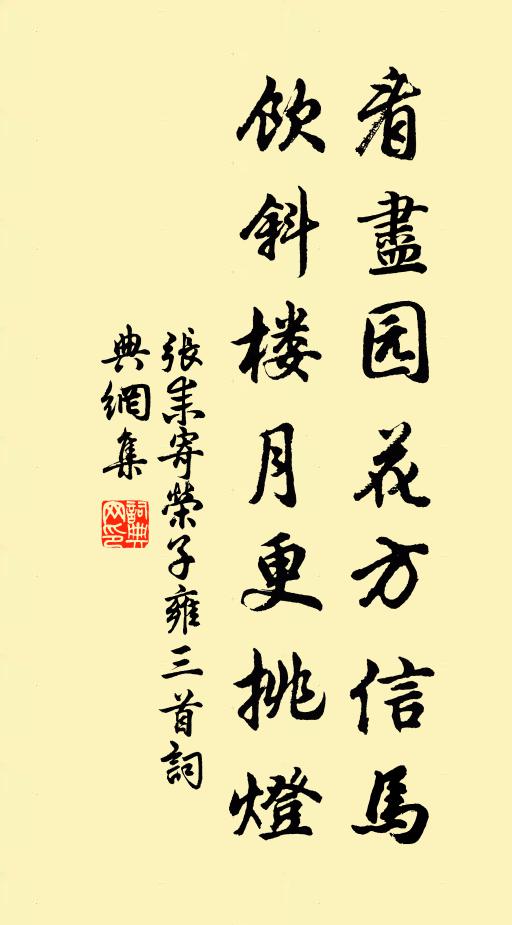 看盡园花方信馬
飲斜楼月更挑燈
張耒寄榮子雍三首詞
典網集
詞典网印